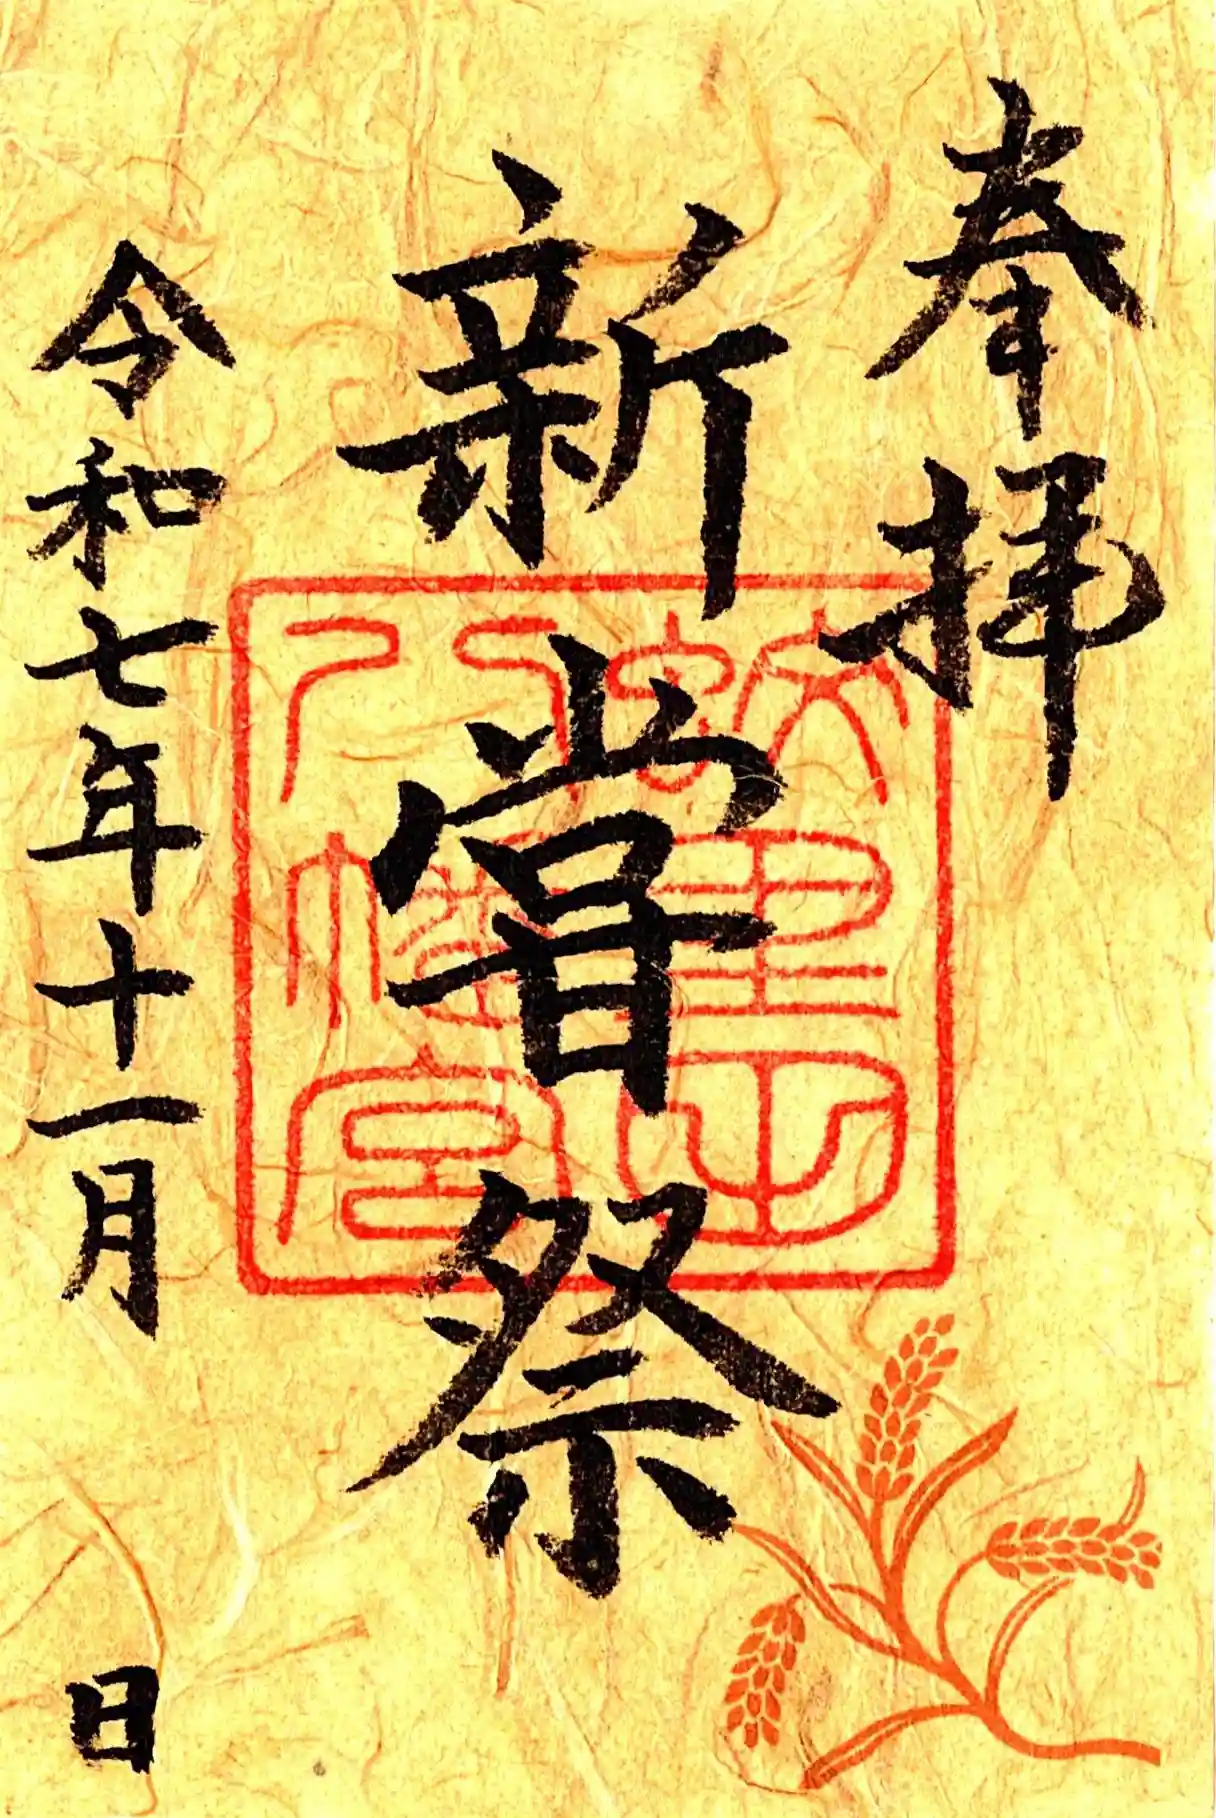 奉拝
新嘗祭
八幡宮
令和七年十一月 日